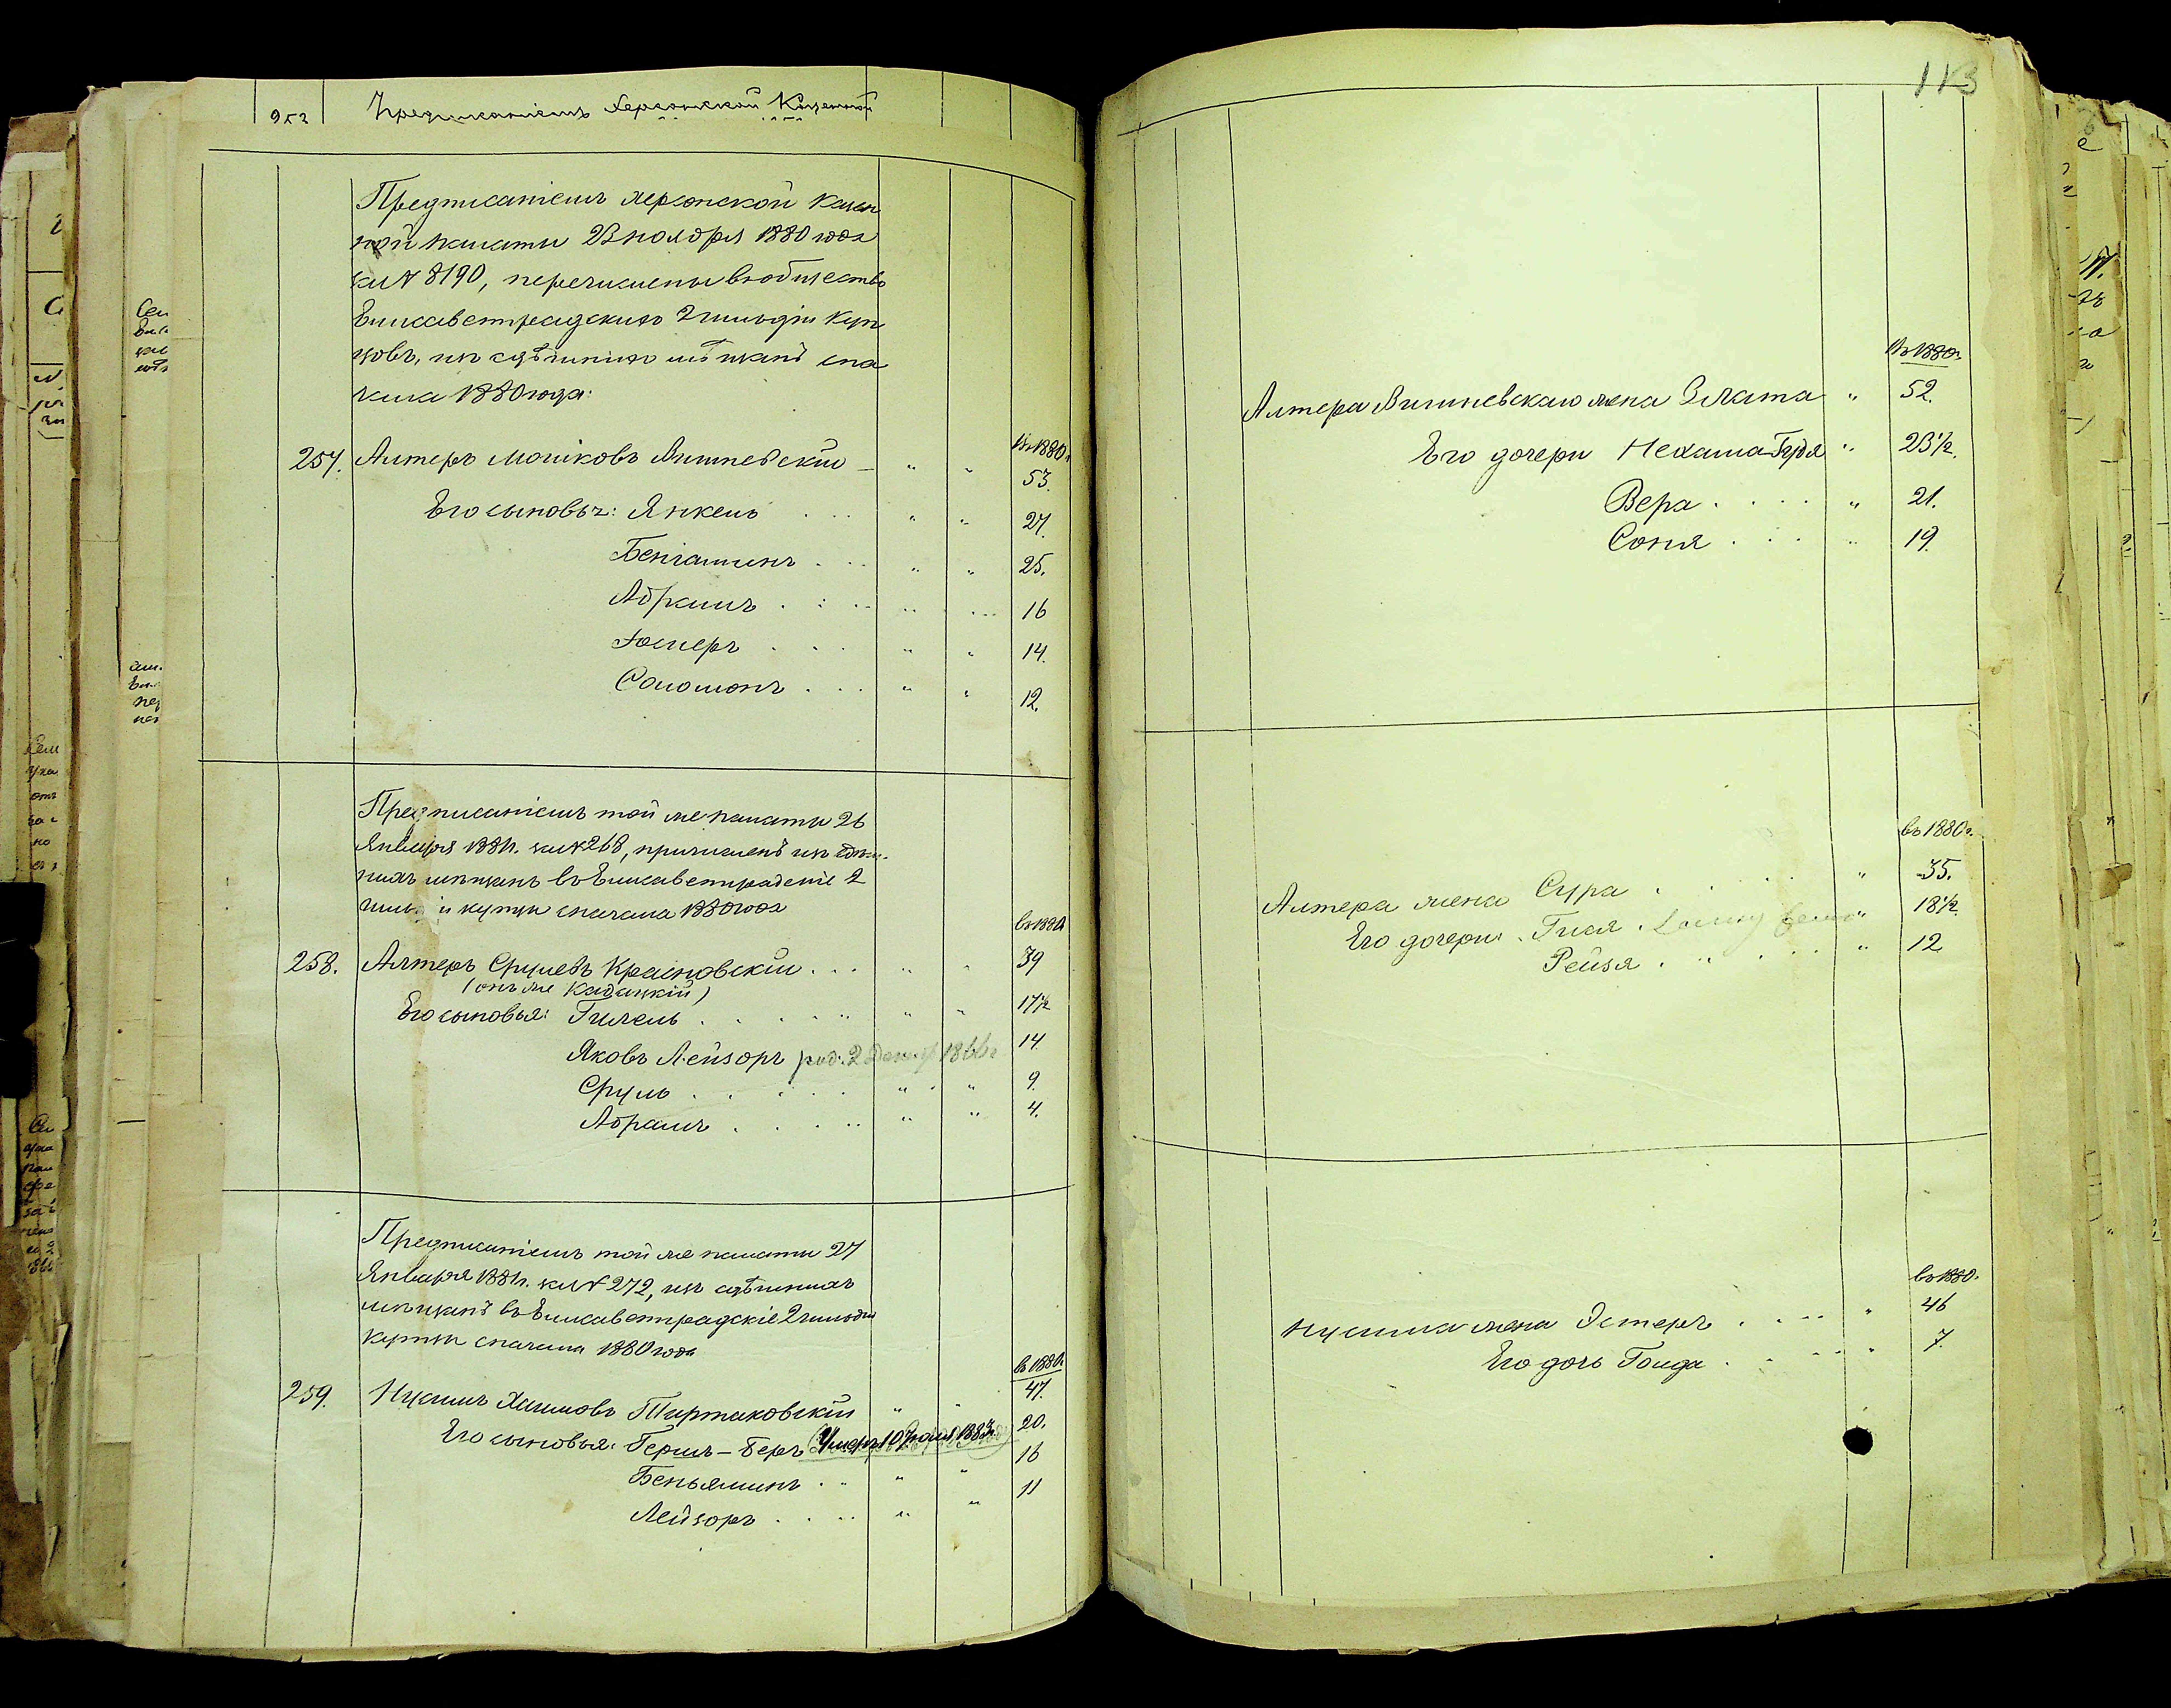 Предписаніемъ Херсонской Казенной
Предписаніемъ Херсонской Казен
ной палаты 23 ноября 1880 года
за № 8190, перечислены въ общество
Елисаветградскихъ 2 гильдіи Куп
цовъ, изъ здѣшнихъ мѣщанъ съ на
чала 1880 года:
въ 1880г.
257. Алтеръ Мошковъ Вишневскій " " 53.
Его сыновья: Янкель " " 27.
Беніаминъ " " 25.
Абрамъ " " 16
" " 14.
Соломонъ " " 12.
Предписаніемъ той же палаты 26
Января 1881г. за № 268, причисленъ изъ здѣш-
нихъ мѣщанъ въ Елисаветградскіе 2
гильдіи купцы съ начала 1880 года
въ 1880
258. Алтеръ Срулевъ Красновскій " " 39
(онъ же Кадацкій)
Его сыновья: Гилель " " 17½
Яковъ Лейзоръ род. 2 1866г 14
Сруль " " 9.
Абрамъ " " 4.
Предписаніемъ той же палаты 27
Января 1881г. за № 272, изъ здѣшнихъ
мѣщанъ въ Елисаветградскіе 2 гильдіи
купцы съ начала 1880 года
въ 1880г
259. Нусимъ Хаимовъ Тиртаковскій " 47.
Его сыновья: Гершъ-Беръ Умеръ 10 1883г. 20.
Беньяминъ " " 16
Лейзоръ " " 11
113
въ 1880г.
Алтера Вишневскаго жена Злата " 52.
Его дочери Нехама-Гудя " 23½.
Вера " 21.
Соня " 19.
въ 1880г.
Алтера жена Сура " 35.
Его дочери: Гися " 18½
Рейзя " 12
въ 1880.
Нусима жена Эстеръ " 46
Его дочь Голда " 7.